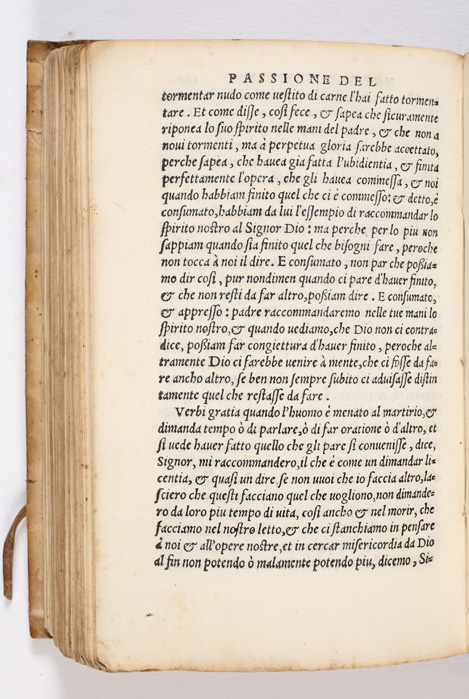 PASSIONE DEL
tormentar nudo come uestito di carne l'hai fatto tormen-
tare. Et come disse, così fece, & sapea che sicuramente
riponea lo suo spirito nelle mani del padre, & che non a
noui tormenti, ma à perpetua gloria sarebbe accettato,
perche sapea, che hauea gia fatta l'ubidientia, & finita
perfettamente l'opera, che gli hauea commessa, & noi
quando habbiam finito quel che ci è commesso: & detto, è
consumato, habbiam da lui l'essempio di raccommandar lo
spirito nostro al Signor Dio: ma perche per lo piu non
sappiam quando sia finito quel che bisogni fare, peroche
non tocca à noi il dire. E consumato, non par che poßia-
mo dir così, pur nondimen quando ci pare d'hauer finito,
& che non resti da far altro, poßiam dire. E consumato,
& appresso: padre raccommandaremo nelle tue mani lo
spirito nostro, & quando uediamo, che Dio non ci contra-
dice, poßiam far congiettura d'hauer finito, peroche al-
tramente Dio ci farebbe uenire à mente, che ci fosse da fa-
re ancho altro, se ben non sempre subito ci aduisasse distin
tamente quel che restasse da fare.
Verbi gratia quando l'huomo è menato al martirio, &
dimanda tempo ò di parlare, ò di far oratione ò d'altro, et
si uede hauer fatto quello che gli pare si conuenisse, dice,
Signor, mi raccommandero, il che è come un dimandar li-
centia, & quasi un dire se non uuoi che io faccia altro, la-
sciero che questi facciano quel che uogliono, non dimande-
ro da loro piu tempo di uita, così ancho & nel morir, che
facciamo nel nostro letto, & che ci stanchiamo in pensare
à noi & all'opere nostre, et in cercar misericordia da Dio
al fin non potendo ò malamente potendo piu, dicemo, Si-